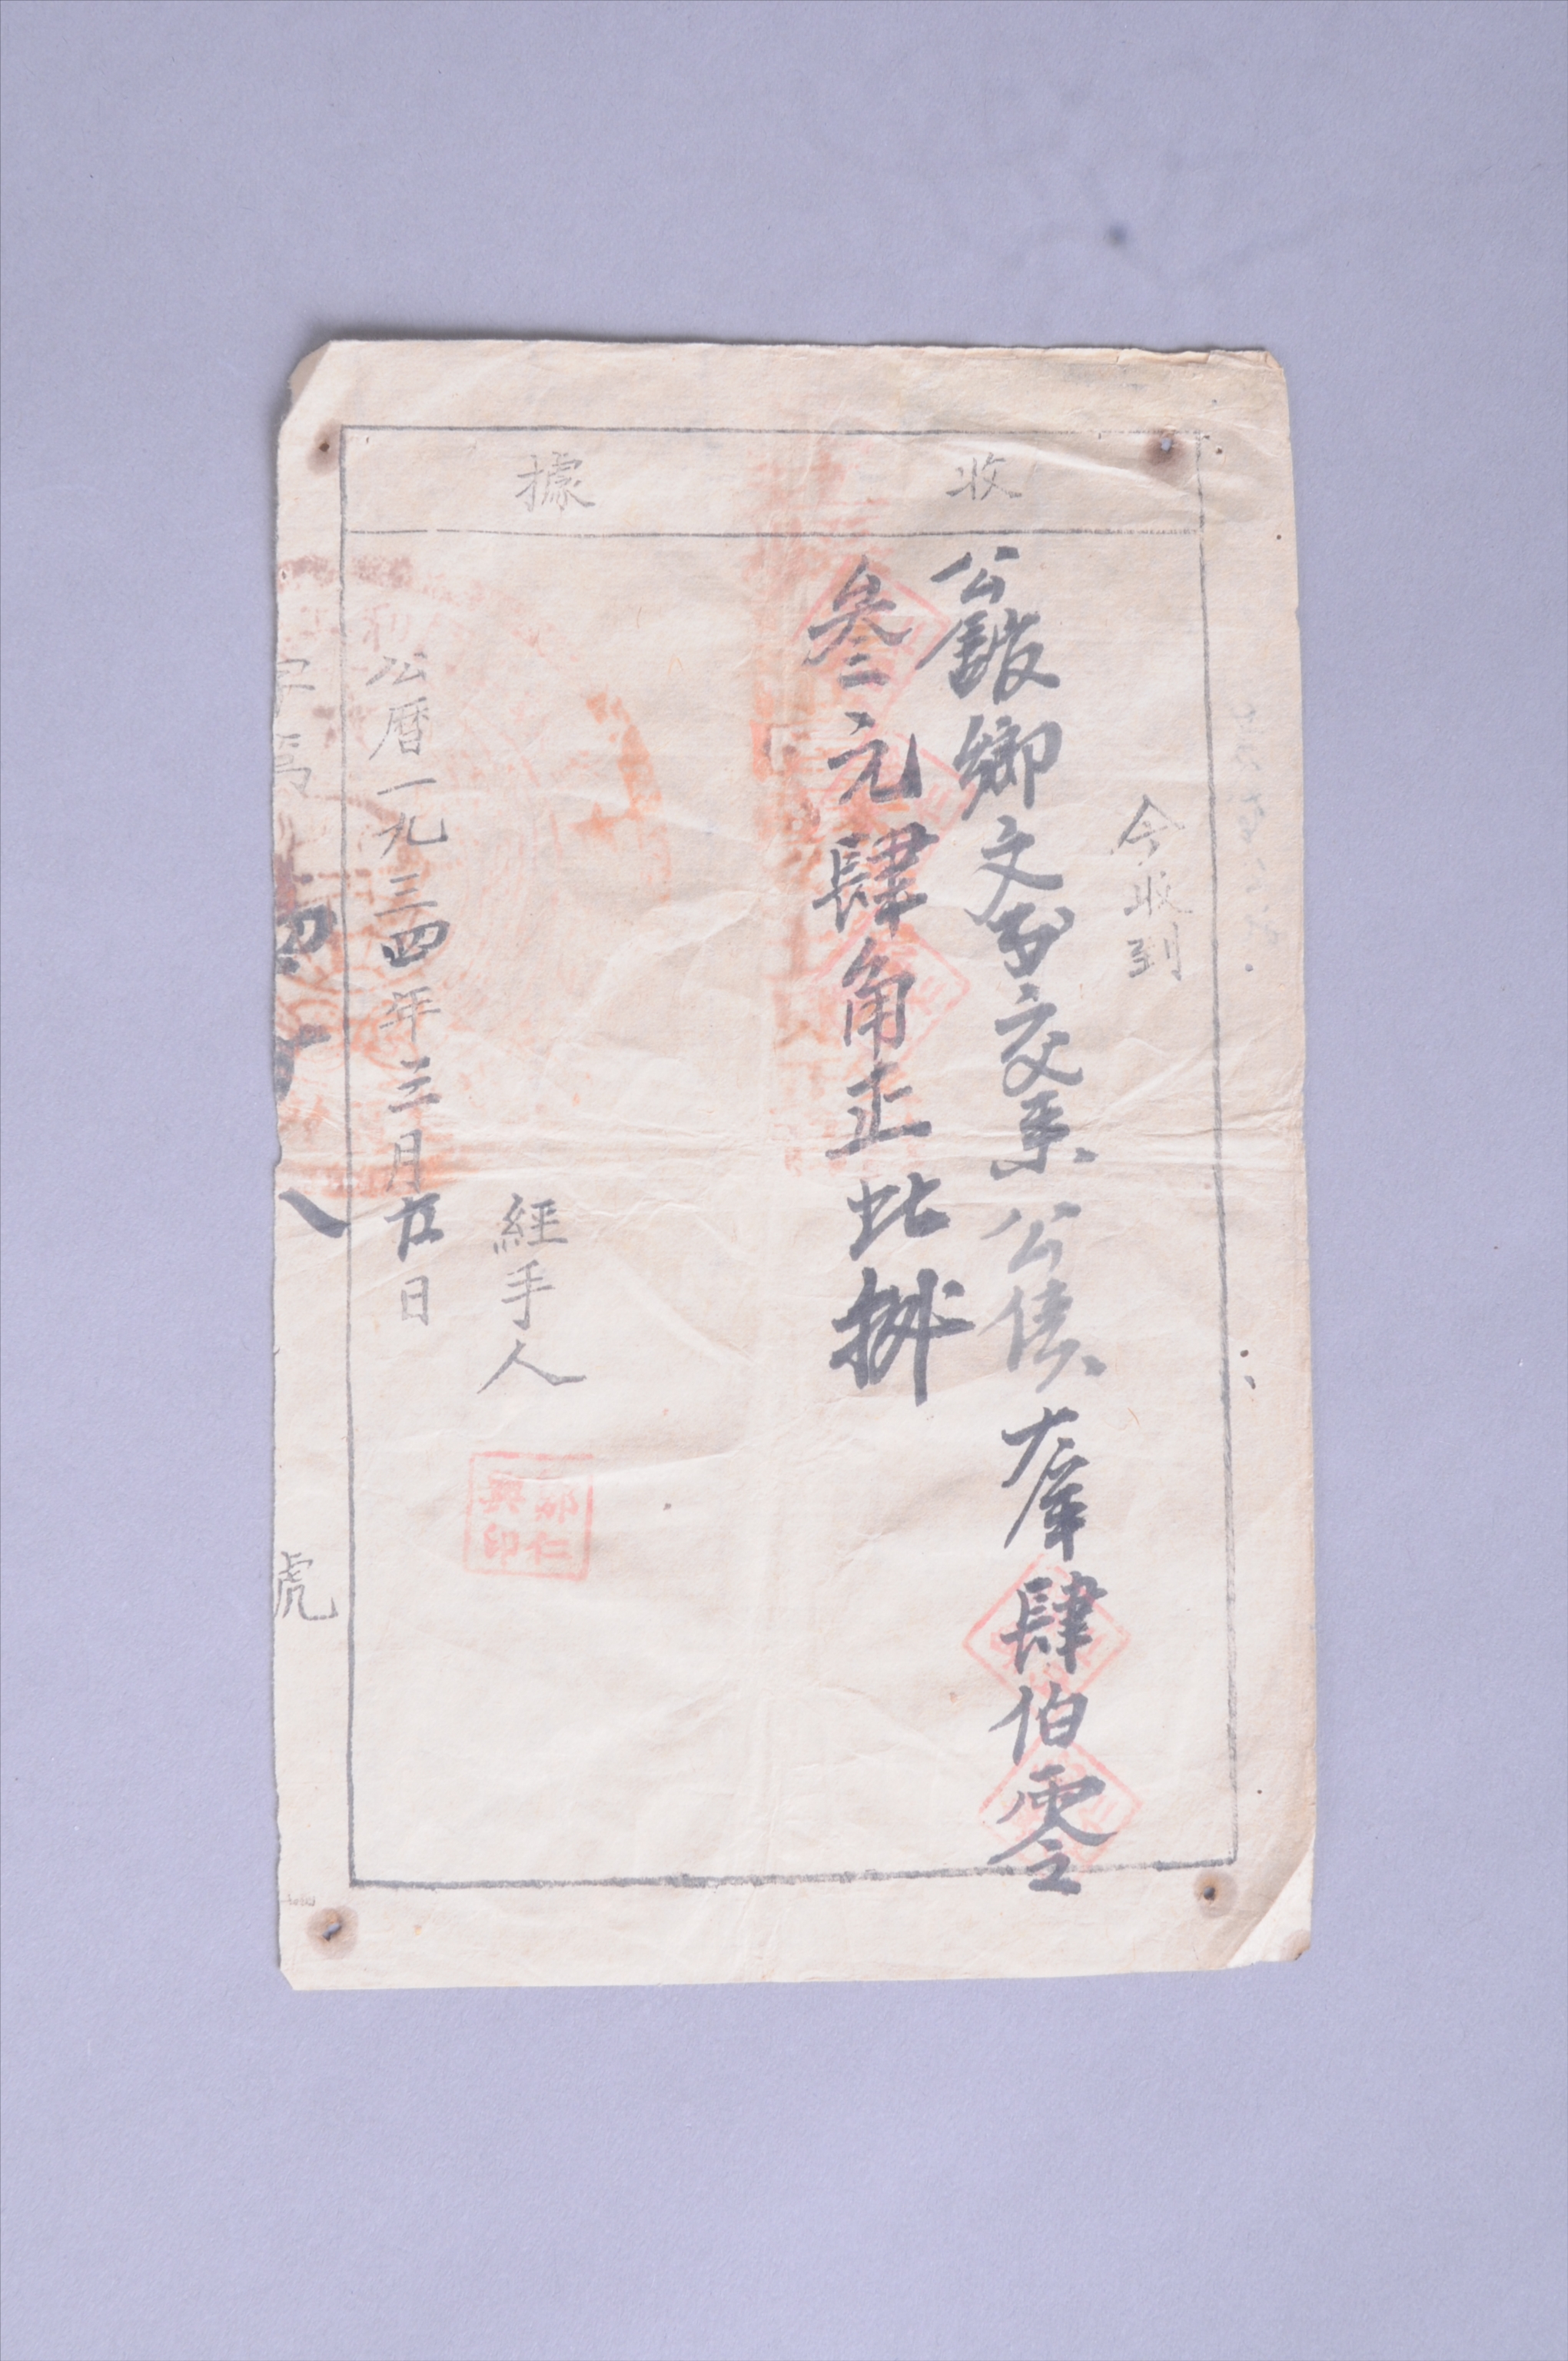 收據
今收到
公館鄉文 交來公債大洋肆伯零
叁元肆角正此據
經手人
仁興印
公曆一九三四年三月廿五日
字第 八 號